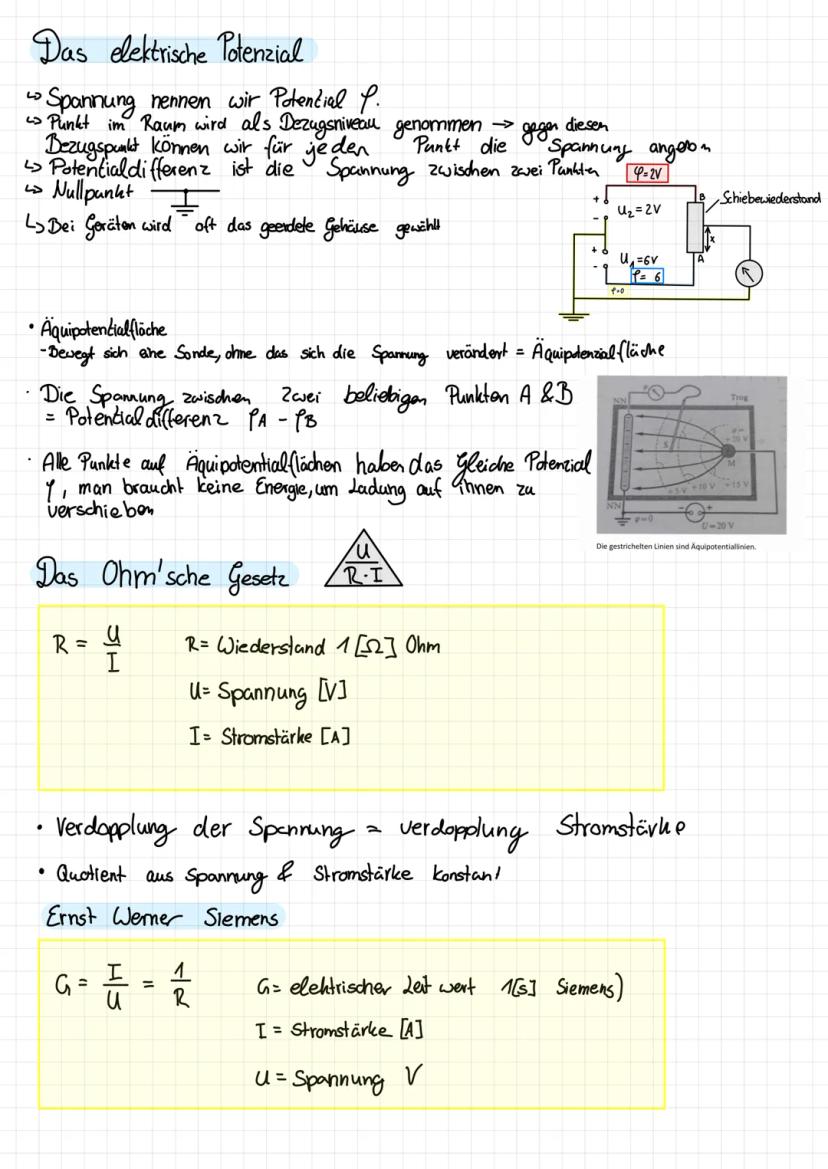 Das elektrische Potenzial
↳ Spannung nennen wir Potential φ.
↳ Punkt im Raum wird als Bezugsniveau genommen → gegen diesen
Bezugspunkt können wir für jeden Punkt die Spannung angeben
↳ Potentialdifferenz ist die Spannung zwischen zwei Punkten
φ=2V
↳ Nullpunkt
+
-
U₂=2V
B
Schiebewiederstand
↳ Bei Geräten wird oft das geerdete Gehäuse gewählt
x
+
-
U₁=6V
A
φ= 6
φ=0
• Äquipotentialfläche
- Bewegt sich eine Sonde, ohne das sich die Spannung verändert = Äquipotenzialfläche
· Die Spannung zwischen zwei beliebigen Punkten A & B
= Potentialdifferenz φA - φB
· Alle Punkte auf Äquipotentialflächen haben das gleiche Potenzial
φ, man braucht keine Energie, um Ladung auf ihnen zu
verschieben
NN
Trog
φ=
+20 V
S
M
+5 V +10 V +15 V
NN
- +
φ=0
U=20 V
Die gestrichelten Linien sind Äquipotentiallinien.
Das Ohm'sche Gesetz
U
R·I
R = U/I
R= Wiederstand 1 [Ω] Ohm
U= Spannung [V]
I= Stromstärke [A]
• Verdopplung der Spannung = verdopplung Stromstärke
• Quotient aus Spannung & Stromstärke konstant
Ernst Werner Siemens
G = I/U = 1/R
G= elektrischer Leit wert 1[S] Siemens)
I = Stromstärke [A]
U = Spannung V